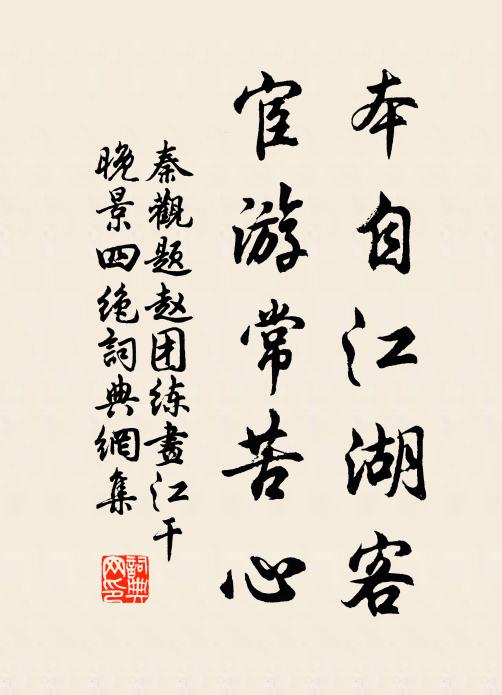 本自江湖客
宦游常苦心
秦觀題赵团练畫江干
晚景四绝詞典網集
詞典
网印